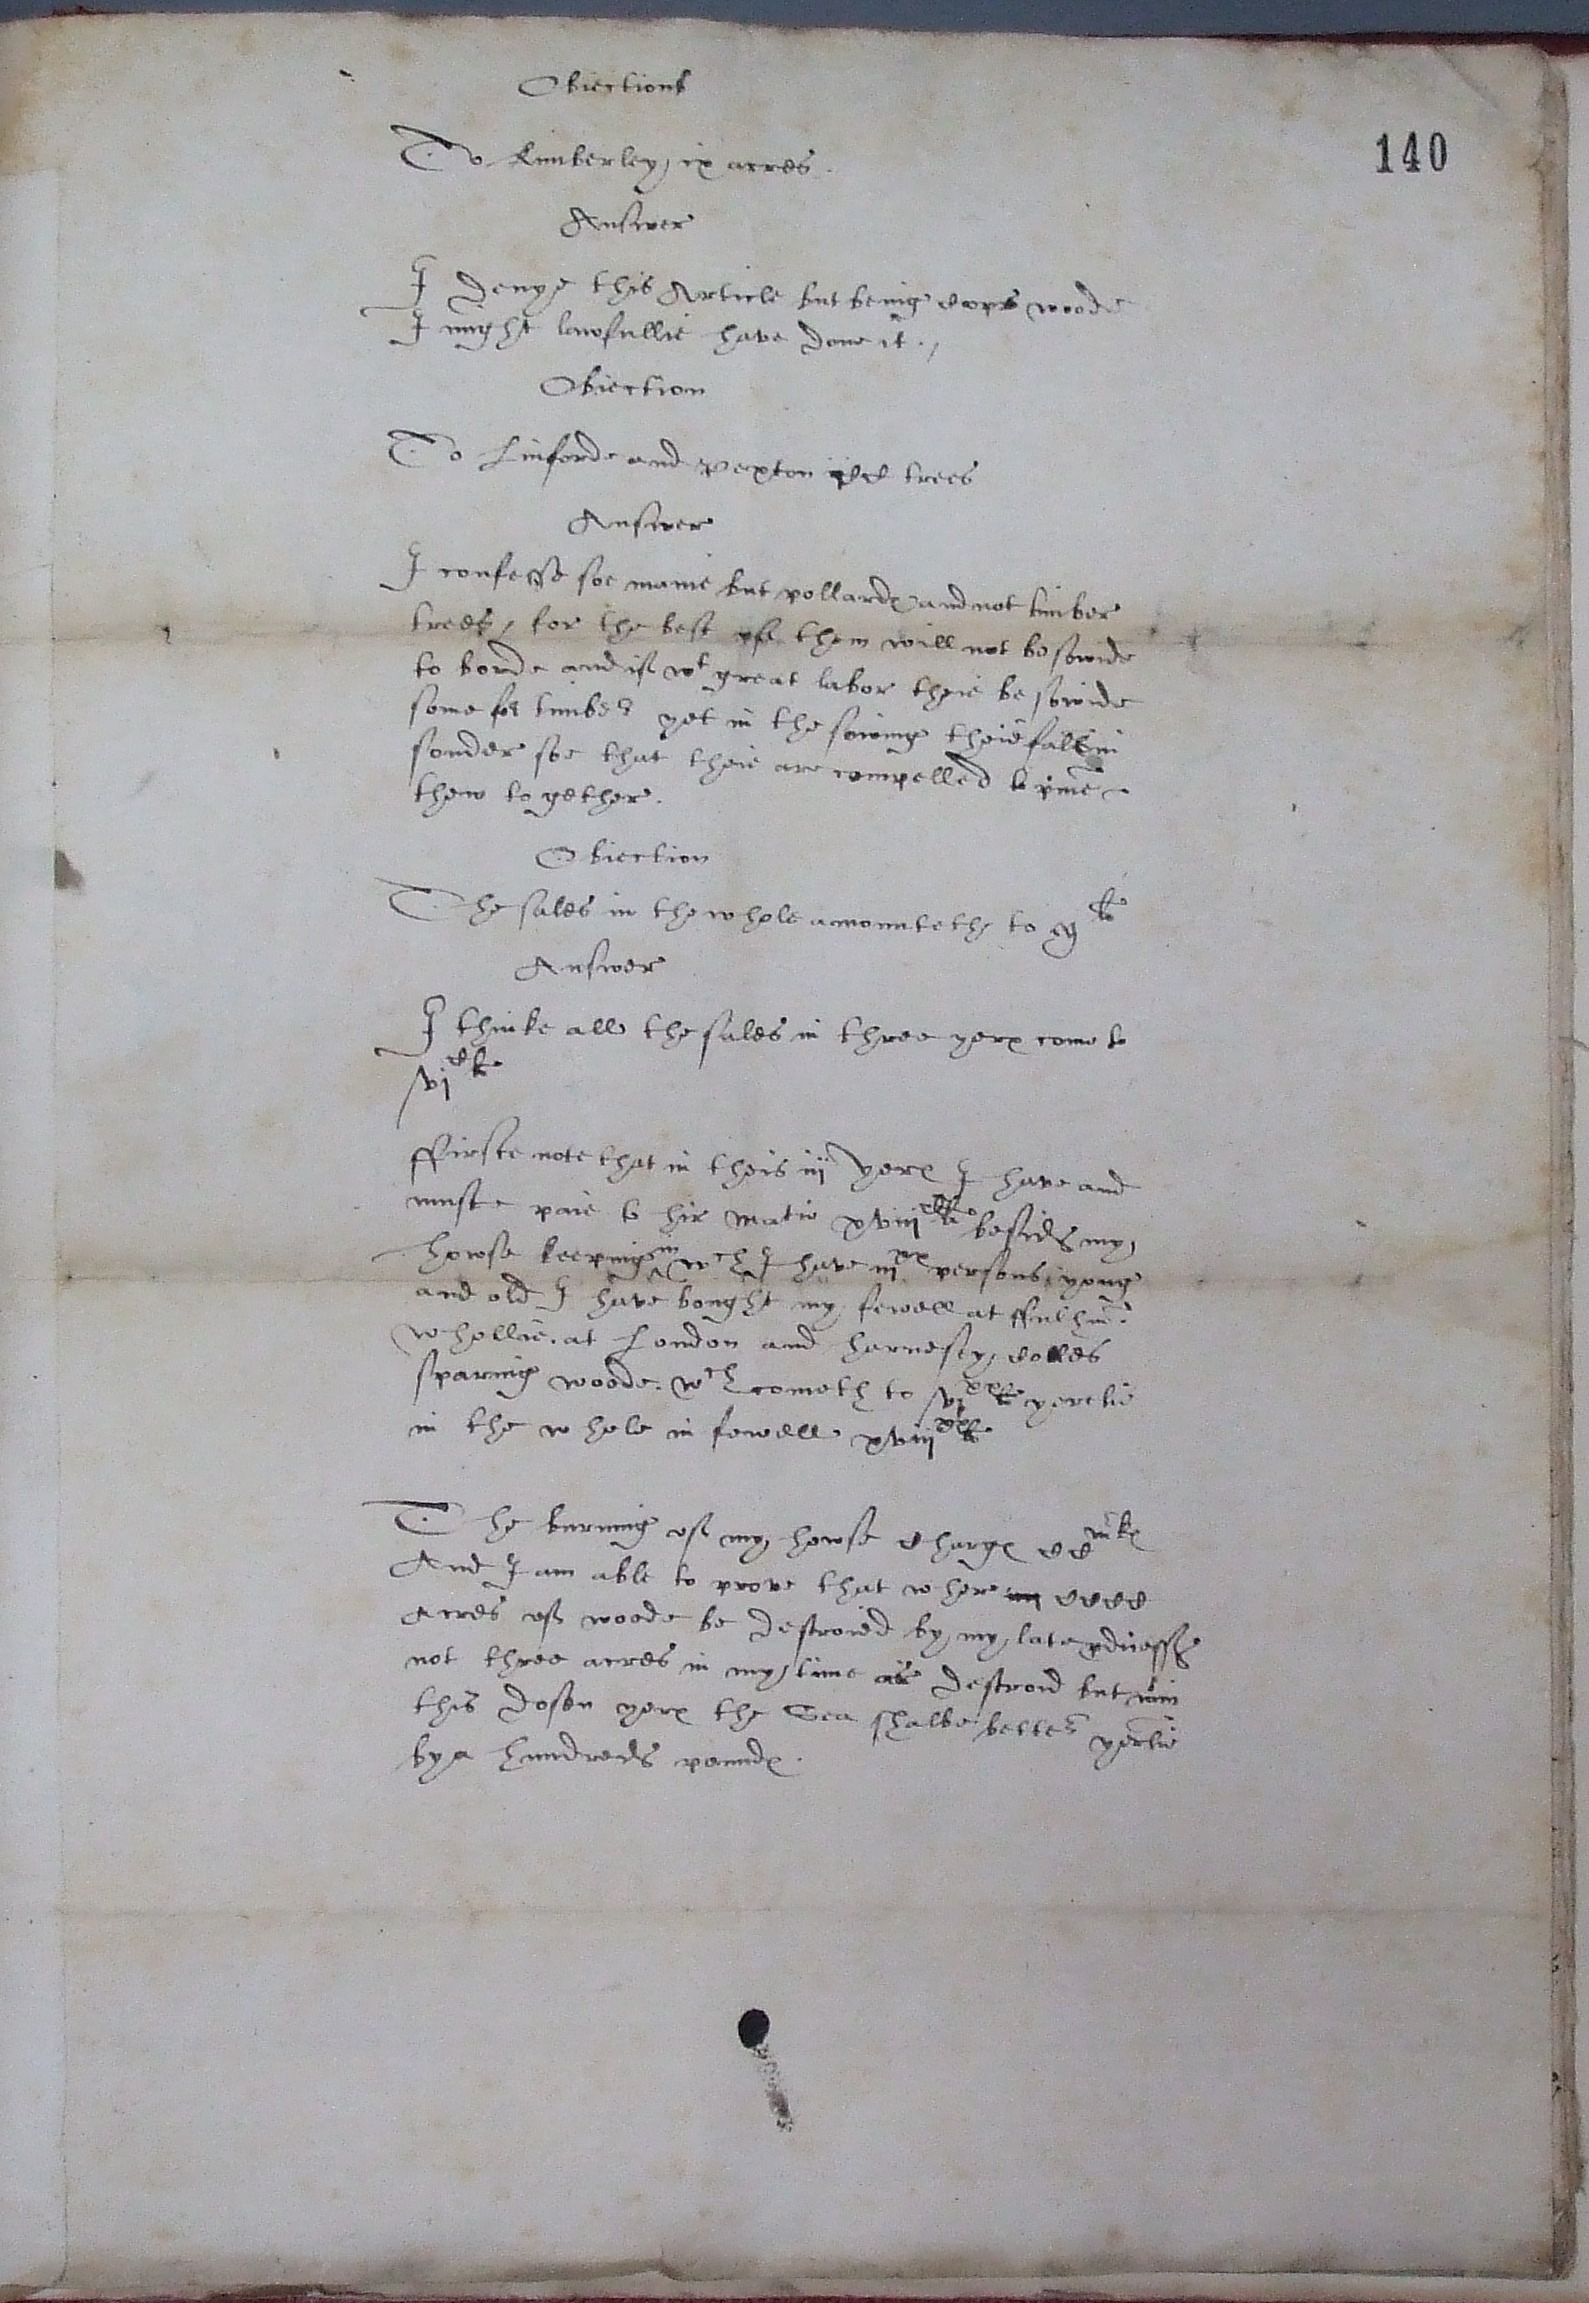 Obiections
140
To Kimberley, ix acres.
Answer
I denye this Article but being cops woode
I might lawfullie have done it.,
Obiection
To Linforde and Pexton trees
Answer
I confesse soe manie but pollard and not timber
trees, for the best of them will not be sowide
to borde and if wt great labor theie be sowide
some for timber yet in the sowing theie fall in
sonder soe that theie are compelled to
them together.
Obiection
The sales in the whole amounteth to
Answer
I thinke all the sales in three yers come to
vjc li
ffirste note that in theis iij yers I have and
muste paie to hir Matie xviijc li besids my
howse keeping in wch I have iijxx persons yong
and old I have bought my fewell at ffulhm.
whollie. at London and Harnesey, coles
sparing woode. wch cometh to vjxx li yerelie
in the whole in fewell xviijxx li
The burning of my howse charges cc mks
And I am able to prove that where cccc
acres of woode be destroied by my late
not three acres in my time is destroid but wtin
this dosen yers the Sea shalbe better yerlie
by a hundreds pounds.